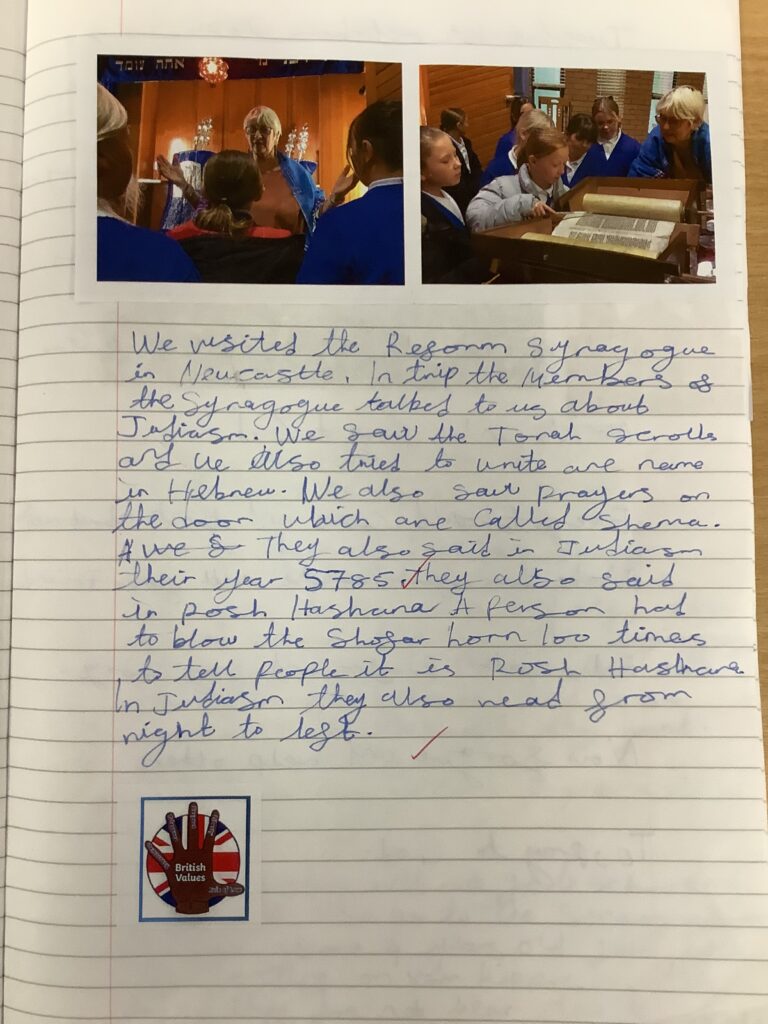 אתה עומד
We visited the Reform Synagogue
in Newcastle. In trip the Members of
the Synagogue talked to us about
Judiasm. We saw the Torah scrolls
and we also tried to write are name
in Hebrew. We also saw prayers on
the door which are Called Shema.
They also said in Judiasm
their year 5785. they also said
in rosh Hashana A person had
to blow the Shofar horn 100 times
to tell people it is Rosh Hashana
In Judiasm they also read from
right to left.
British
Values